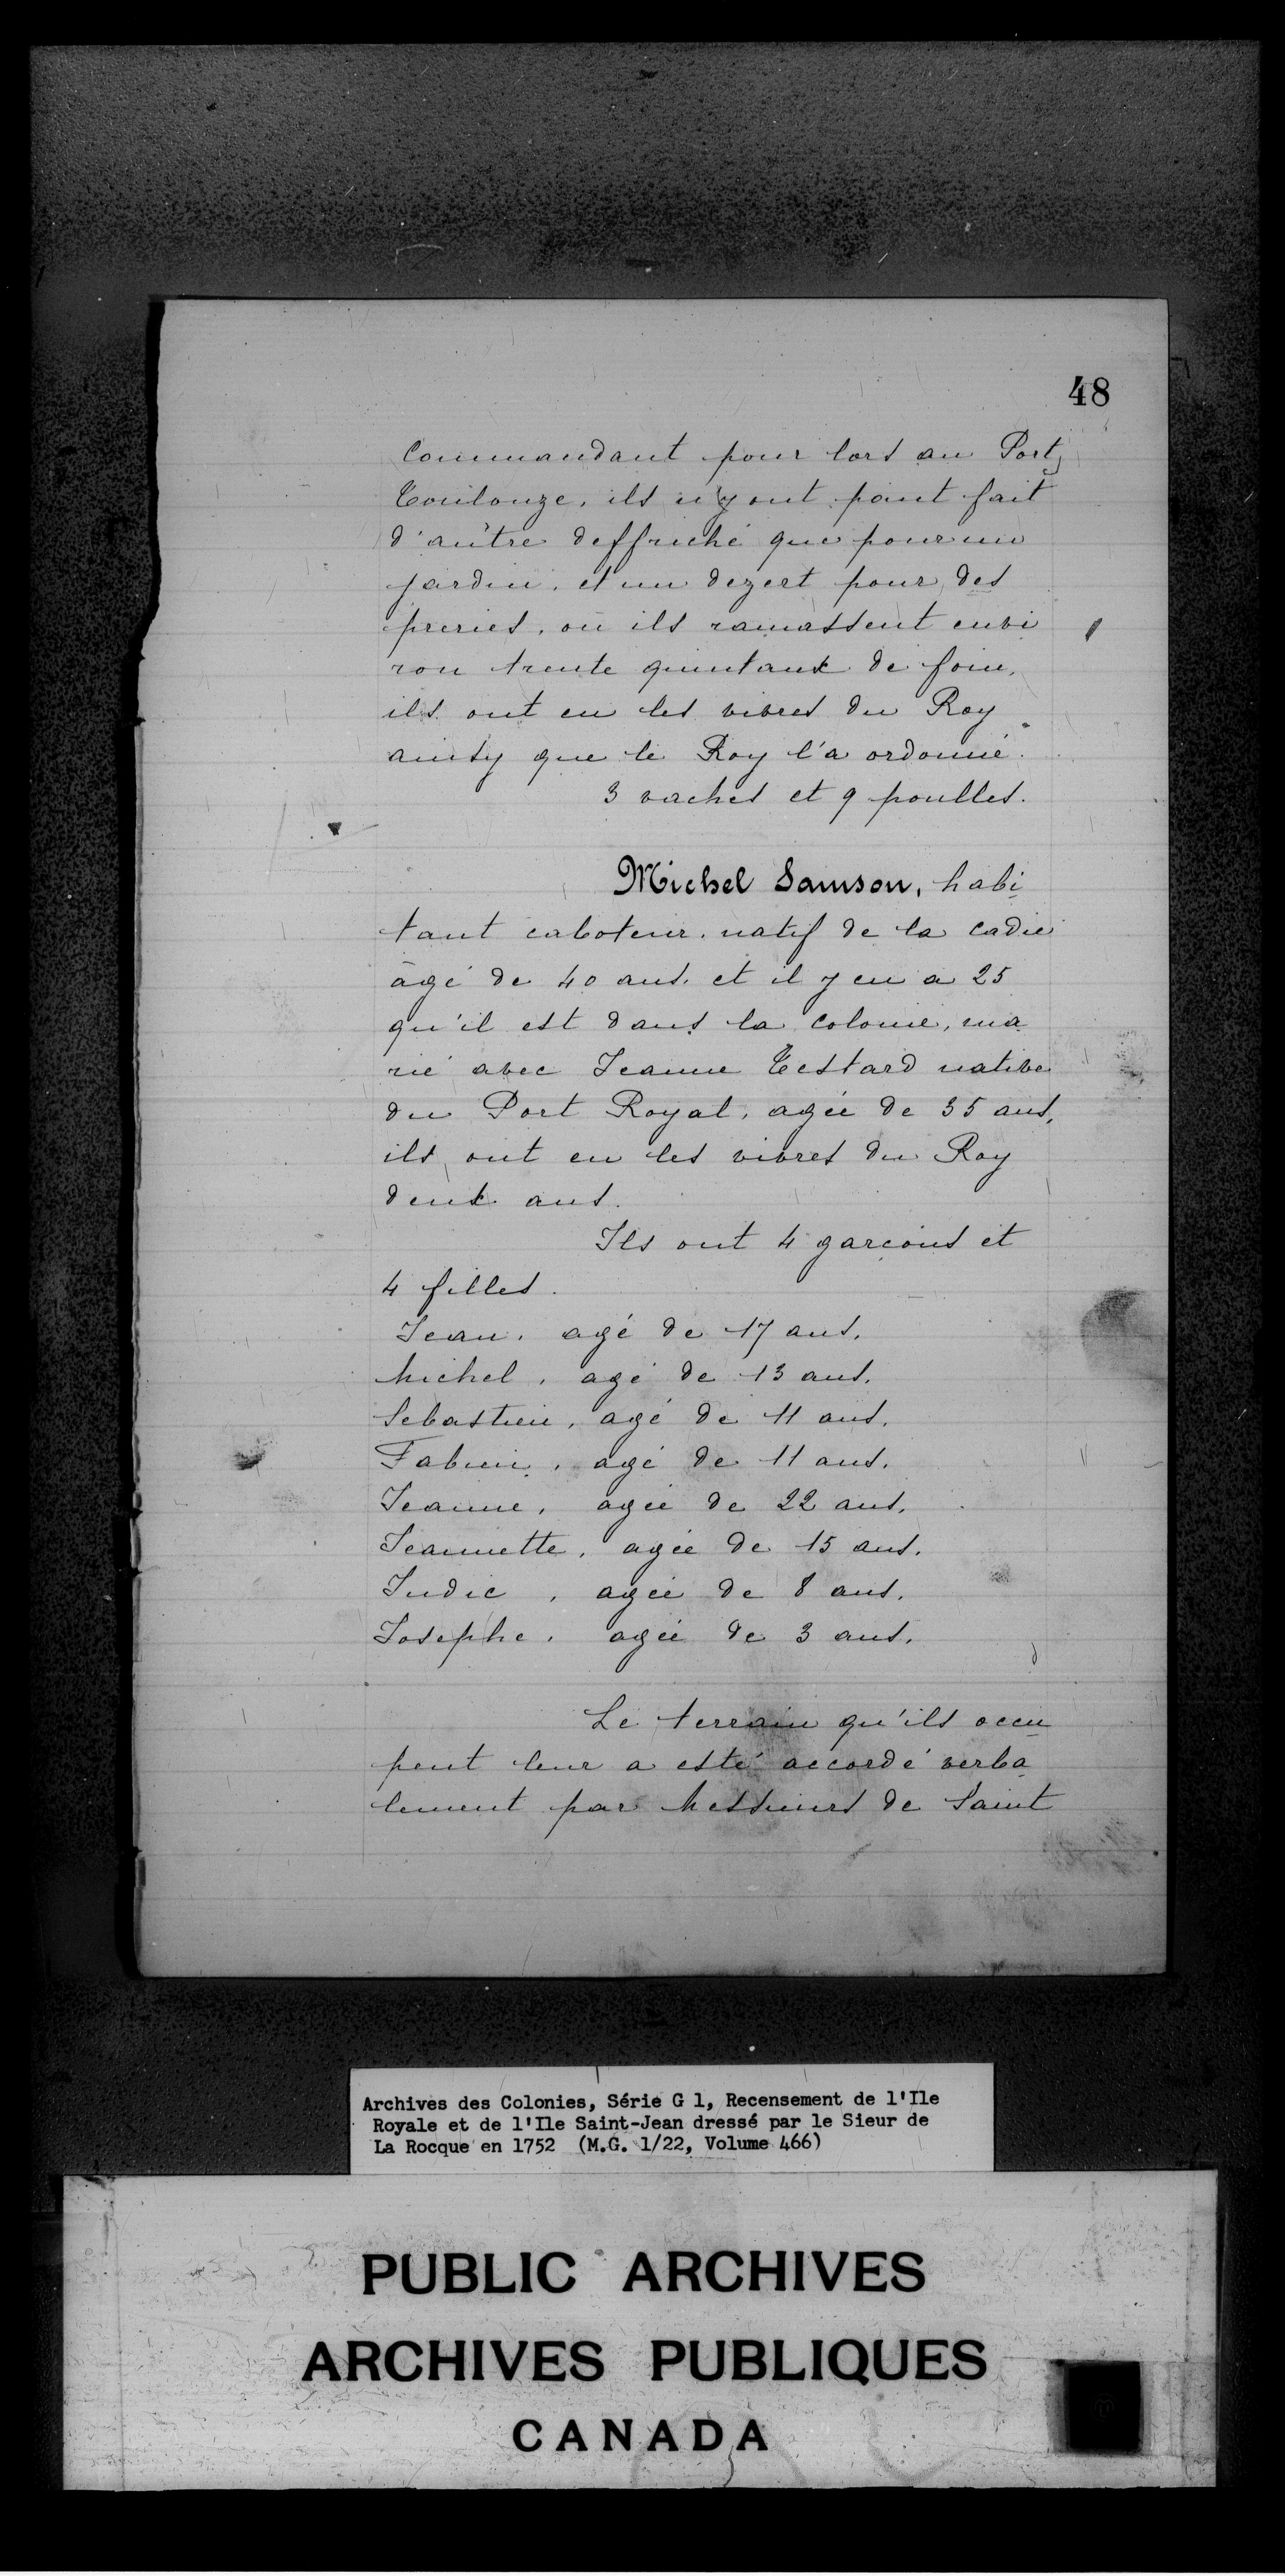 48
Commandant pour lors au Port
Toulouze, ils n'y ont point fait
d'autre deffriché que pour un
jardin, et un dezert pour des
preries, ou ils ramassent envi
ron trente quintaux de foin,
ils ont eu les vivres du Roy
ainsy que le Roy l'a ordonné.
3 vaches et 9 poulles.
Michel Samson, habi
tant caboteur, natif de la cadie
âgé de 40 ans, et il y en a 25
qu'il est dans la colonie, ma
rié avec Jeanne Testard native
du Port Royal, agée de 35 ans,
ils ont eu les vivres du Roy
deux ans.
Ils ont 4 garçons et
4 filles.
Jean, agé de 17 ans,
Michel, agé de 13 ans,
Sebastien, agé de 11 ans,
Fabien, agé de 11 ans,
Jeanne, agée de 22 ans,
Jeannette, agée de 15 ans,
Judic, agée de 8 ans,
Josephe, agée de 3 ans.
Le terrain qu'ils occu
pent leur a esté accordé verba
lement par Messieurs de Saint
Archives des Colonies, Série G 1, Recensement de l'Ile
Royale et de l'Ile Saint-Jean dressé par le Sieur de
La Rocque en 1752 (M.G. 1/22, Volume 466)
PUBLIC ARCHIVES
ARCHIVES PUBLIQUES
CANADA